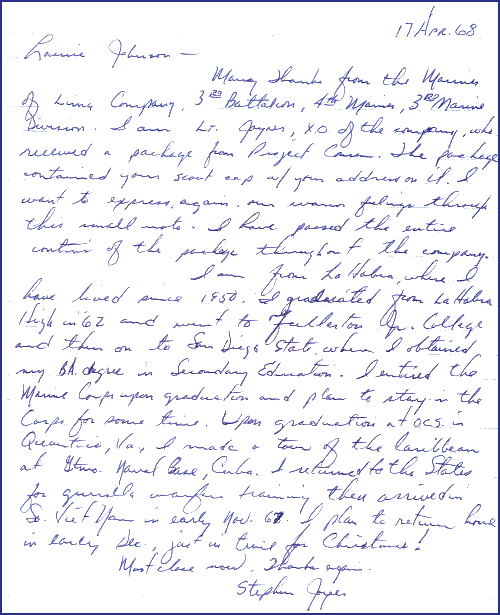 17 Apr. 68
Laurie Johnson —
Many thanks from the Marines
of Lima Company, 3RD Battalion, 4th Marines, 3RD Marine
Division. I am Lt. Joyner, XO of the company, who
received a package from Project Concern. The package
contained your scout cap w/ your address on it. I
want to express, again, our warm feelings through
this small note. I have passed the entire
content of the package throughout the company.
I am from La Habra, where I
have lived since 1950. I graduated from La Habra
High in '62 and went to Fullerton Jr. College
and then on to San Diego State, where I obtained
my BA. degree in Secondary Education. I entered the
Marine Corps upon graduation and plan to stay in the
Corps for some time. Upon graduation at OCS. in
Quantico, Va., I made a tour of the Caribbean
at Gtmo. Naval Base, Cuba. I returned to the States
for guerrilla warfare training then arrived in
So. Viet Nam in early Nov. 67. I plan to return home
in early Dec., just in time for Christmas!
Must close now. Thanks again.
Stephen Joyner